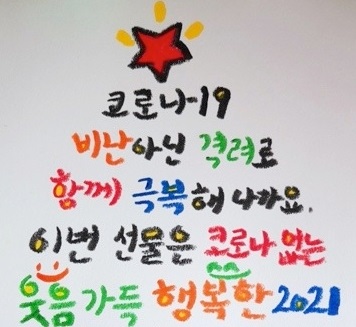 코로나-19
비난아닌 격려로
함께 극복해 나가요.
이번 선물은 코로나 없는
웃음 가득 행복한 2021